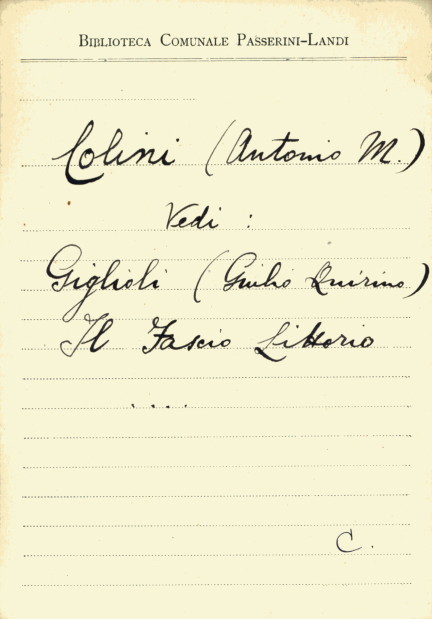 BIBLIOTECA COMUNALE PASSERINI-LANDI
Colini (Antonio M.)
Vedi :
Giglioli (Giulio Quirino)
Il Fascio Littorio
. . . .
C.